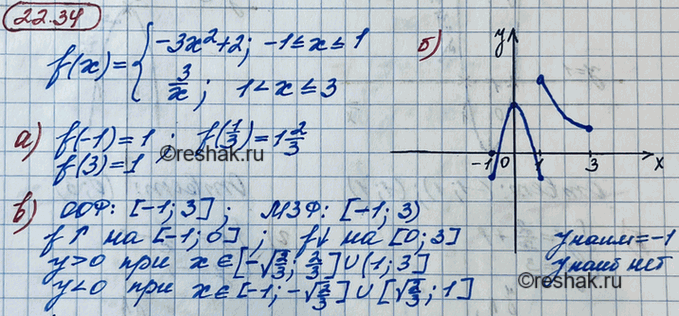 22.34
f(x) = { -3x²+2; -1≤x≤1
3/x; 1<x≤3
а) f(-1)=1; f(1/3)=1 2/3
f(3)=1
© reshak.ru
б) y
-1 0 1 3 x
в) ООФ: [-1; 3]; МЗФ: [-1; 3)
f↑ на [-1; 0]; f↓ на [0; 3]
y>0 при x∈[-√2/3; 2/3]∪(1; 3]
y<0 при x∈[-1; -√2/3]∪[√2/3; 1]
yнаим=-1
yнаиб нет
© reshak.ru